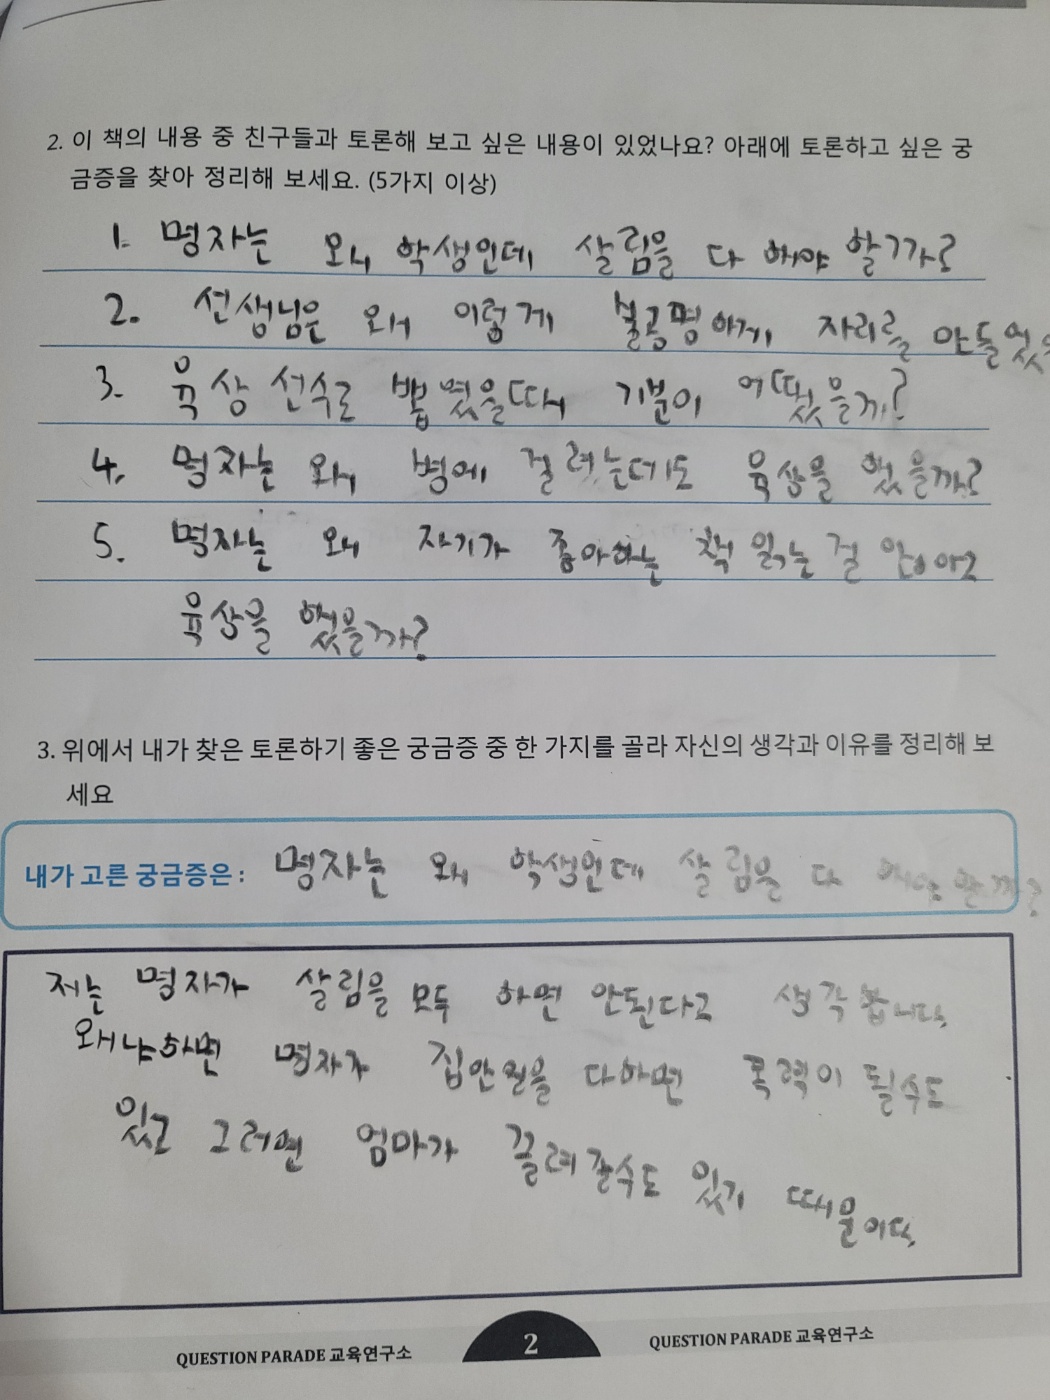 2. 이 책의 내용 중 친구들과 토론해 보고 싶은 내용이 있었나요? 아래에 토론하고 싶은 궁
금증을 찾아 정리해 보세요. (5가지 이상)
1. 명자는 왜 학생인데 살림을 다 해야 할까?
2. 선생님은 왜 이렇게 불공명하게 자리를 만들었을
3. 육상 선수로 뽑혔을때 기분이 어땠을까?
4. 명자는 왜 병에 걸려는데도 육상을 했을까?
5. 명자는 왜 자기가 좋아하는 책 읽는 걸 안하고
육상을 했을까?
3. 위에서 내가 찾은 토론하기 좋은 궁금증 중 한 가지를 골라 자신의 생각과 이유를 정리해 보
세요
내가 고른 궁금증은 : 명자는 왜 학생인데 살림을 다 해야 할까?
저는 명자가 살림을 모두 하면 안된다고 생각합니다.
왜냐하면 명자가 집안일을 다하면 폭력이 될수도
있고 그러면 엄마가 끌려갈수도 있기 때문이다.
QUESTION PARADE 교육연구소
2
QUESTION PARADE 교육연구소